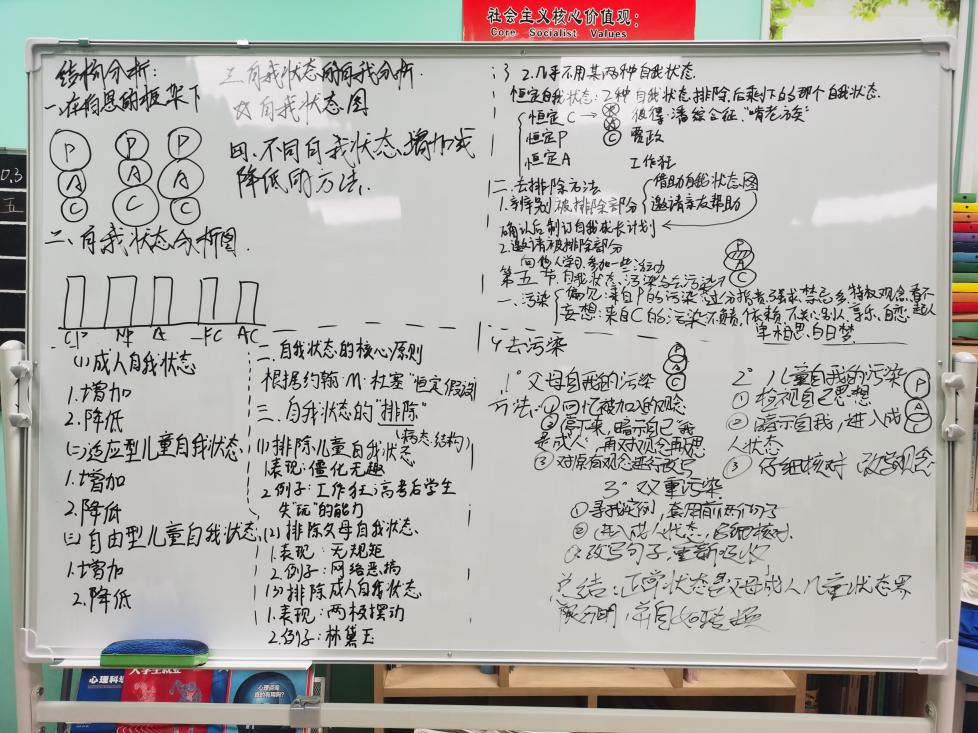 社会主义核心价值观:
Core Socialist Values
0.3
五
结构分析:
一、在伯恩的框架下
P P P
A A A
C C C
二、自我状态分析图.
CP NP A FC AC
三、自我状态的自我分析.
自我状态图
四、不同自我状态增加或
降低的方法.
(1)成人自我状态
1.增加
2.降低
(二)适应型儿童自我状态
1.增加
2.降低
(三)自由型儿童自我状态
1.增加
2.降低
二、自我状态的核心原则
根据约翰·M·杜塞"恒定假设"
三、自我状态的"排除"
(病态结构)
(1)排除儿童自我状态
1.表现:僵化无趣
2.例子:工作狂;高考后学生
失"玩"的能力
(2)排除父母自我状态
1.表现:无规矩
2.例子:网络恶搞
(3)排除成人自我状态
1.表现:两极摆动
2.例子:林黛玉
2.几乎不用某两种自我状态
恒定自我状态:2种自我状态排除后剩下的那个自我状态.
恒定C → 彼得·潘综合征."啃老族"
恒定P
恒定A 工作狂
二、去排除方法
1.辨别被排除部分
借助自我状态图
邀请亲友帮助
确认后制订自我成长计划
2.邀请被排除部分
向他人学习,参加一些活动
P
A
C
第五节、自我状态污染与去污染
一、污染
偏见:来自P的污染
妄想:来自C的污染
单相思,白日梦
去污染
P
A
C
1° 父母自我的污染
方法:①回忆被加入的观念
②停下来,暗示自己"我
是成人".再对观念再思
③对原有观念进行改写
2° 儿童自我的污染
P
A
C
①检视自己思想
②暗示自我,进入成
人状态
③仔细核对 改写观念
3° 双重污染
总结:正常状态是父母成人儿童状态界
限分明
心理科
大学生就业
心理咨询
真的有用吗?